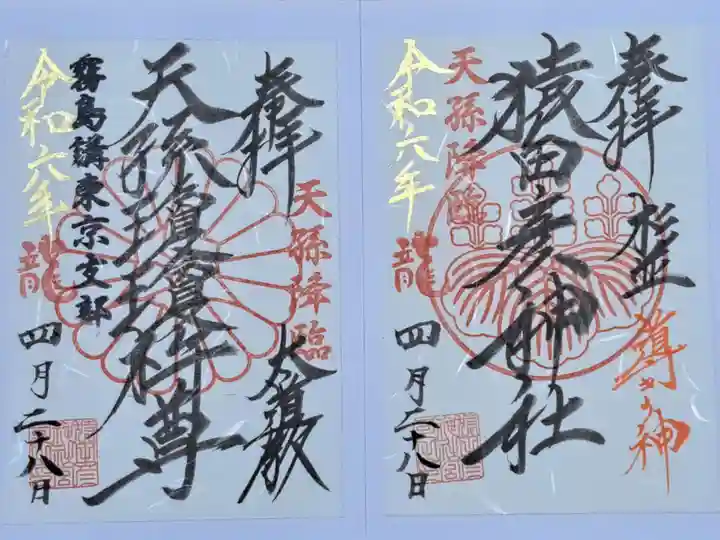 奉拝
杉並
導きの神
猿田彦神社
天孫降臨
令和六年
龍
四月二十八日
奉拝
天孫降臨
天孫瓊瓊杵尊
霧島講東京支部
令和六年
龍
四月二十八日